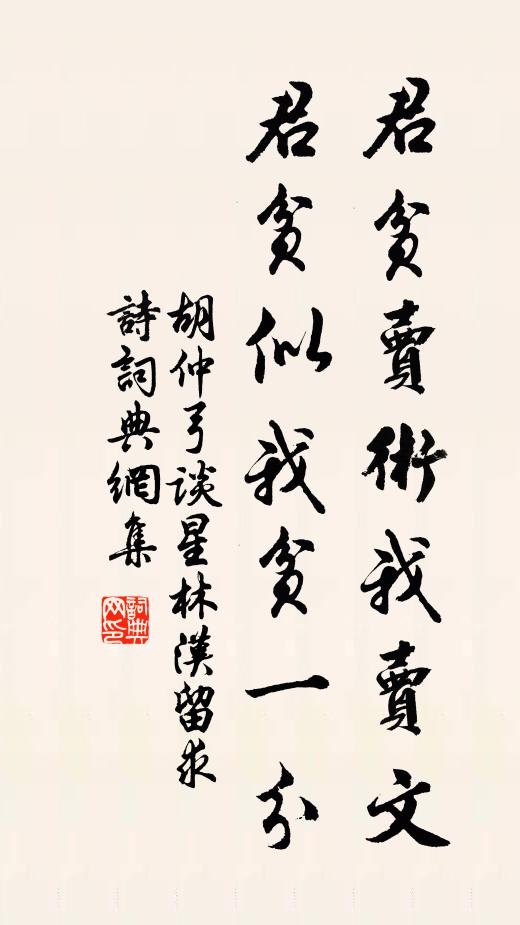 君貧賣術我賣文
君貧似我貧一分
胡仲弓談星林漢留求
詩詞典網集
詞典網印